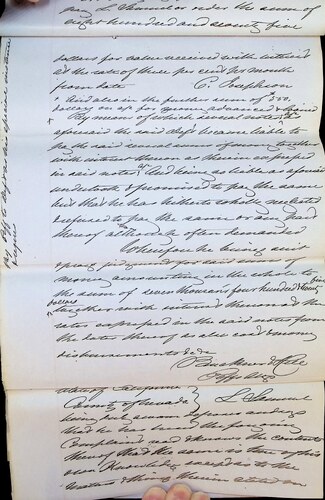 pay L. Samuel or order the sum of
eight hundred and seventy five
dollars for value received with interest
at the rate of three per cent per month
from date C. Josephson
And also in the further sum of $500.
By means of which several notes as
aforesaid the said deft became liable to
pay the said several sums of money together
with interest thereon as therein expressed
in said notes And being so liable as aforesaid
undertook & promised to pay the same
but that he has hitherto wholly neglected
& refused to pay the same or any part
thereof although often demanded
Wherefore he brings suit &
prays judgment for said sums of
money amounting in the whole to
the sum of seven thousand four hundred & twenty
dollars together with interest thereon at the
rates expressed in the said notes from
the dates thereof as also costs & money
disbursements &c &c
State of California
County of Nevada } L. Samuel
being duly sworn deposes and says
that he has heard the foregoing
Complaint read & knows the contents
thereof that the same is true of his
own knowledge except as to the
matters therein stated on